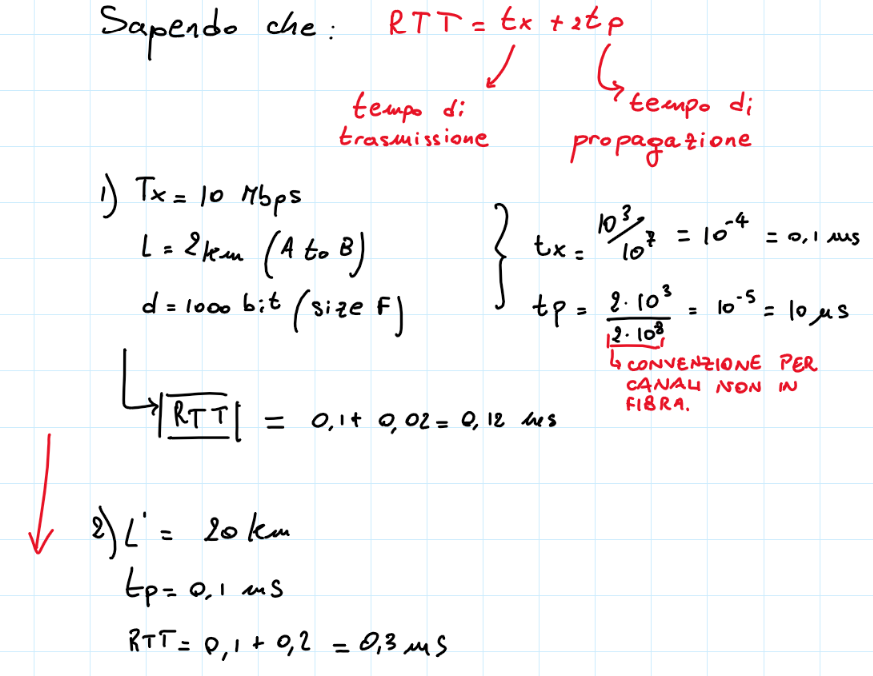 Sapendo che: RTT = tx + 2tp
tempo di trasmissione
tempo di propagazione
1) Tx = 10 Mbps
L = 2 km (A to B)
d = 1000 bit (size F)
tx = 10³/10⁷ = 10⁻⁴ = 0,1 ms
tp = 2·10³/2·10⁸ = 10⁻⁵ = 10 μs
CONVENZIONE PER
CANALI NON IN
FIBRA.
RTT = 0,1 + 0,02 = 0,12 ms
2) L' = 20 km
tp = 0,1 ms
RTT = 0,1 + 0,2 = 0,3 ms